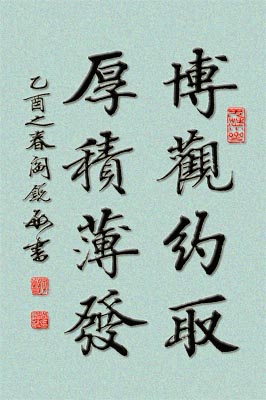 博觀約取
厚積薄發
乙酉之春闞銳敏書